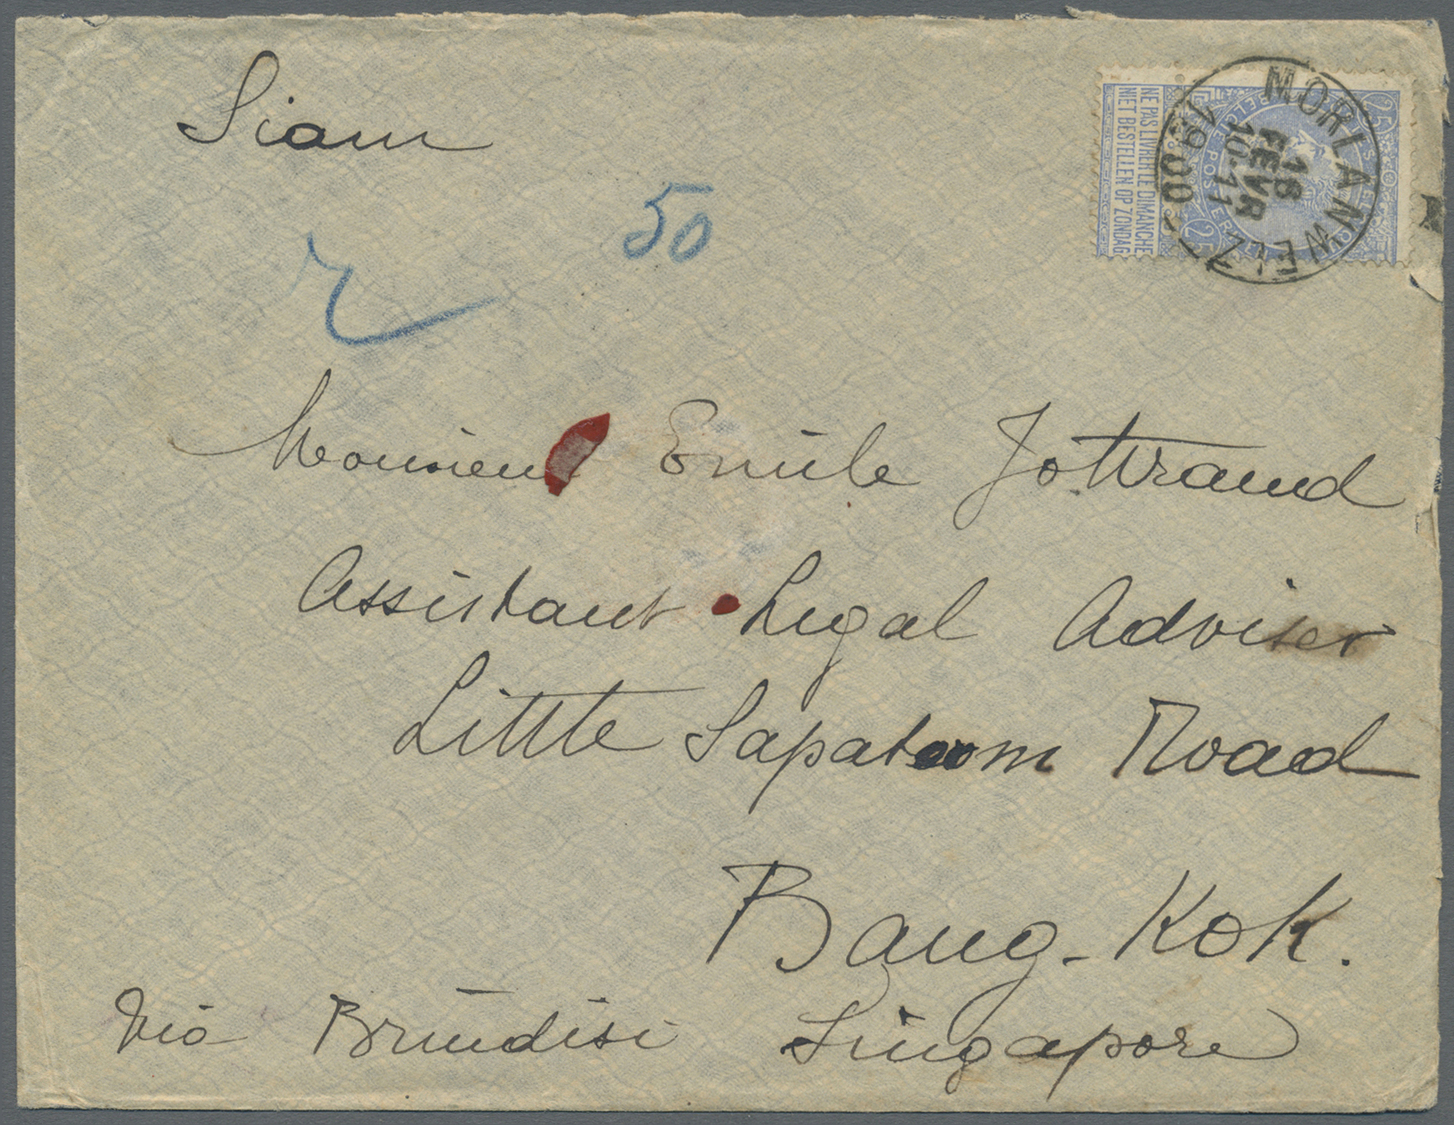 Siam
50
MORLANWELZ
16
FEVR
10-11
1900
NE PAS LIVRER LE DIMANCHE
NIET BESTELLEN OP ZONDAG
Monsieur Emile Jottrand
Assistant Legal Adviser
Little Sapatoom Road
Bang-Kok.
Via Brindisi Singapore